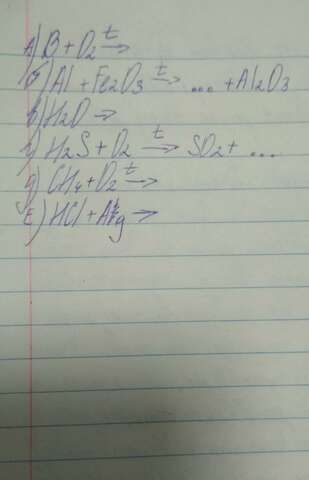 А) B + O2 t→
б) Al + Fe2O3 t→ ... + Al2O3
в) H2O →
г) H2S + O2 t→ SO2 + ...
д) CH4 + O2 t→
Е) HCl + Ag →